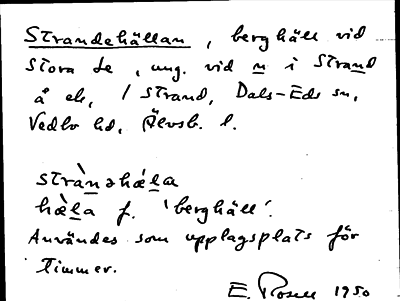 Strandehällan, berghäll vid
Stora Le, ung. vid n i Strand
å ek, / Strand, Dals-Eds sn,
Vedbo hd, Älvsb. l.
strànəhæ̀la
hæ̀la f. 'berghäll'.
Användes som upplagsplats för
timmer.
E. Rosell 1950